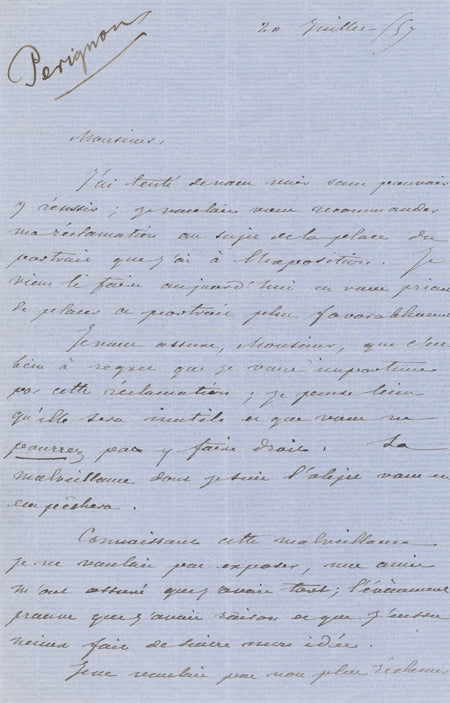 20 Juillet /57
Perignon
Monsieur,
J'ai tenté de vous voir sans pouvoir
y réussir ; je voulais vous recommander
ma réclamation au sujet de la place du
portrait que j'ai à l'Exposition. Je
viens le faire aujourd'hui en vous priant
de placer ce portrait plus favorablement
Je vous assure, Monsieur, que c'est
bien à regret que je vous importune
par cette réclamation ; je pense bien
qu'elle sera inutile et que vous ne
pourrez pas y faire droit. La
malveillance dont je suis l'objet vous en
empêchera.
Connaissant cette malveillance
je ne voulais pas exposer, mes amis
m'ont assuré que j'avais tort ; l'événement
prouve que j'avais raison et que j'eusse
mieux fait de suivre mon idée.
Je ne voulais pas non plus réclamer